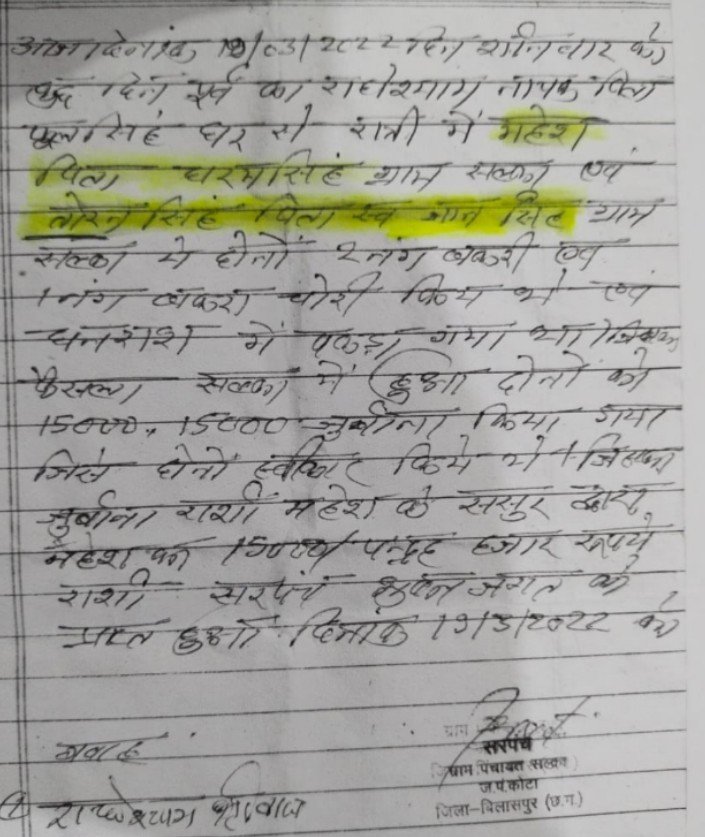 आज दिनांक 19/03/2022 दिन शनिवार को
कुछ दिन पूर्व का राधेश्याम नायक पिता
फुलसिंह घर से रात्री में महेश
पिता धरमसिंह ग्राम सल्का एवं
तोरन सिंह पिता स्व ज्ञान सिंह ग्राम
सल्का ये दोनों 2 नंग बकरी एवं
1 नंग बकरा चोरी किये थे एवं
धनराश में पकड़ा गया था। जिसका
फैसला सल्का में हुआ दोनों को
15000, 15000 जुर्माना किया गया
जिसे दोनों स्वीकार किये थे। जिसका
जुर्माना राशी महेश के ससुर द्वारा
महेश का 15000/ पन्द्रह हजार रूपये
राशी सरपंच जगत को
प्राप्त हुआ दिनांक 19/3/2022 को
गवाह
राधेश्याम
सरपंच
ग्राम पंचायत सल्का
ज.पं.कोटा
जिला-बिलासपुर (छ.ग.)